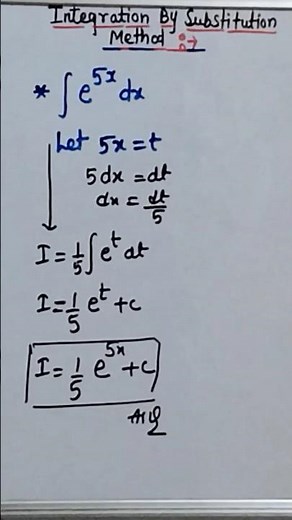 Integration By Substitution
Method :→
* ∫ e^5x dx
Let 5x = t
5 dx = dt
dx = dt/5
I = 1/5 ∫ e^t dt
I = 1/5 e^t + c
I = 1/5 e^5x + c